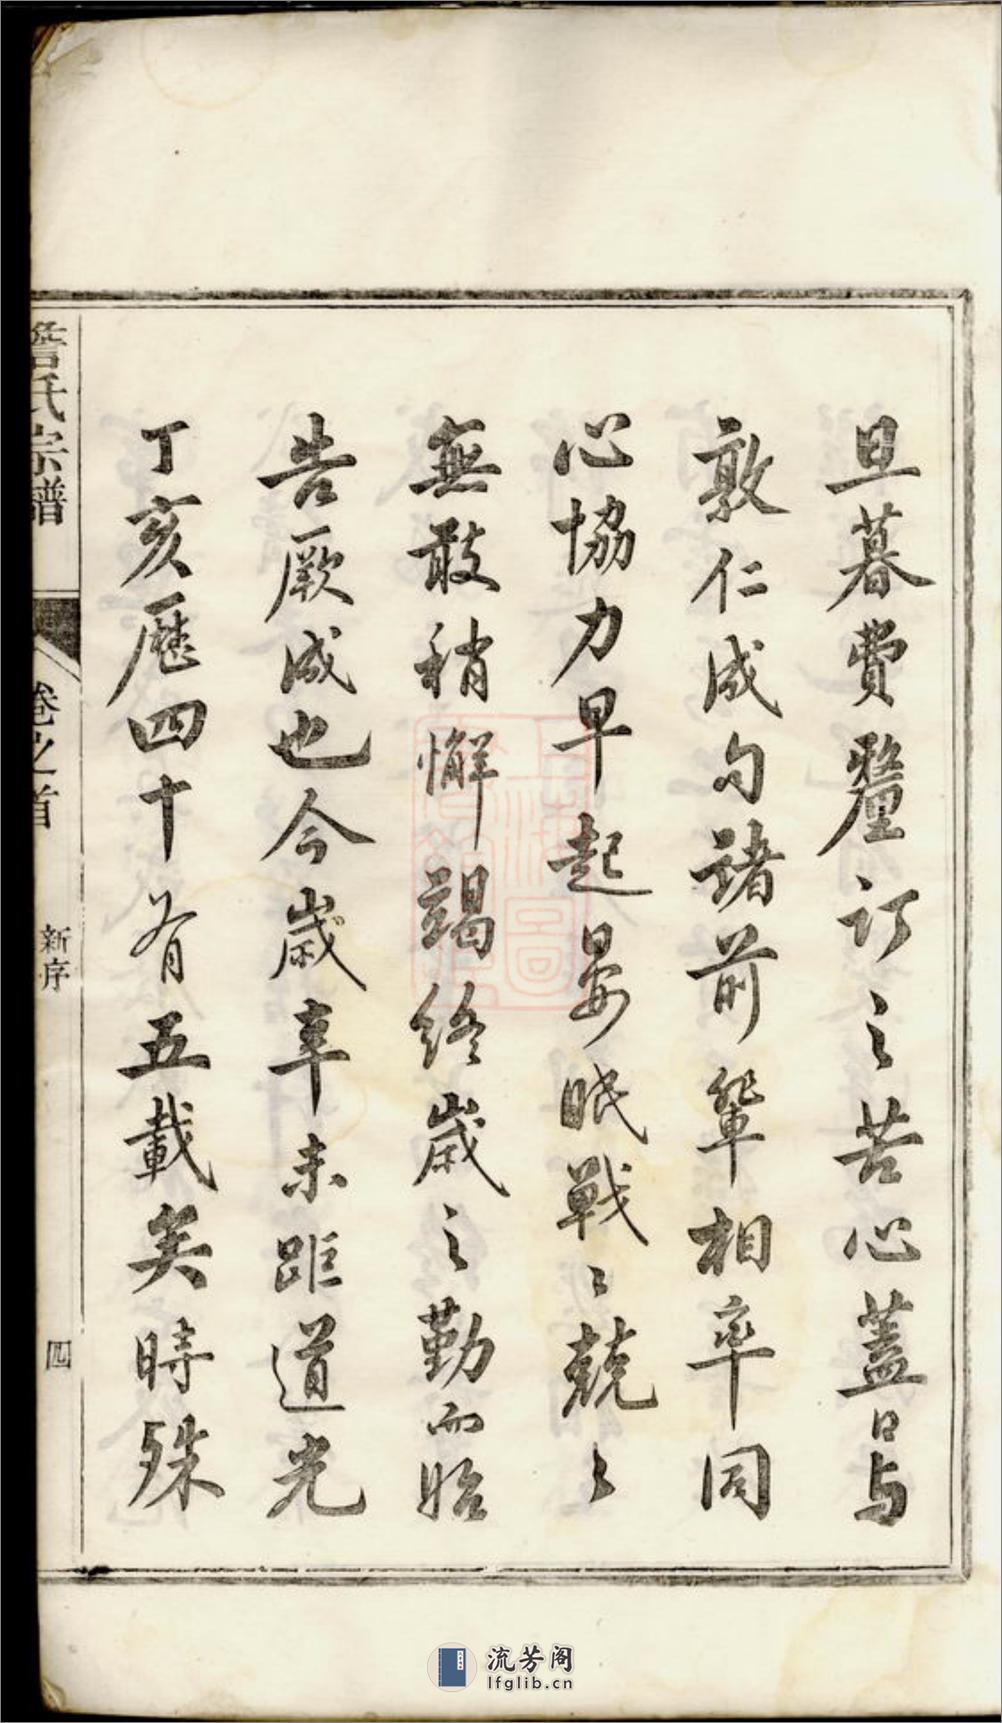 旦暮費釐訂之苦心蓋己与
敦仁成勾諸前輩相率同
心協力早起晏眠戰〻兢〻
無敢稍懈竭终歲之勤而始
告厥成也今歲辛未距道光
丁亥歷四十有五載矣時殊
詹氏宗譜
卷之首
新序
四
流芳阁
lfglib.cn